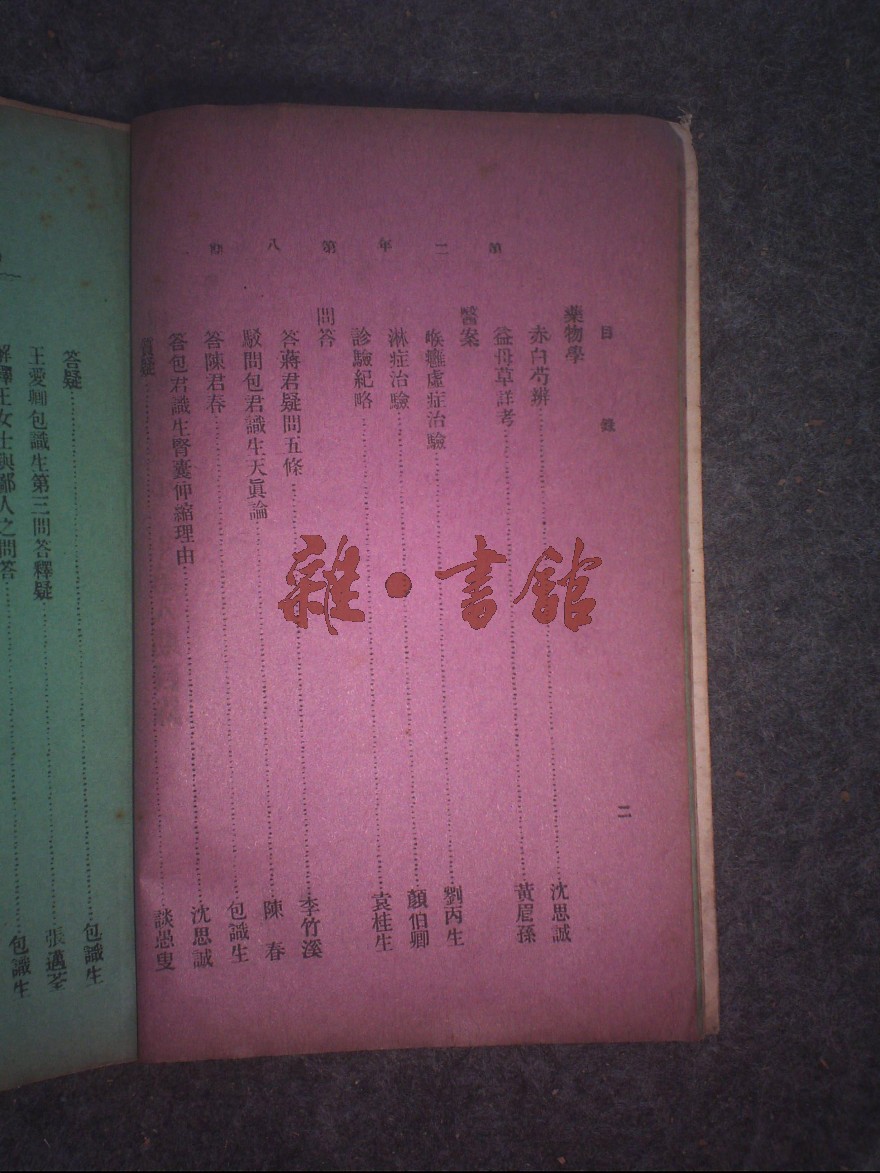 第二年第八冊
目錄
二
藥物學
赤白芍辨……沈思誠
益母草詳考……黃眉孫
醫案
喉癰虛症治驗……劉丙生
淋症治驗……顏伯卿
診驗紀略……袁桂生
問答
答蔣君疑問五條……李竹溪
駁問包君識生天眞論……陳春
答陳君春……包識生
答包君識生腎囊伸縮理由……沈思誠
質疑……談愚叟
答疑……包識生
王愛卿包識生第三問答釋疑……張邁荃
解釋王女士與鄙人之問答……包識生
雜·書館